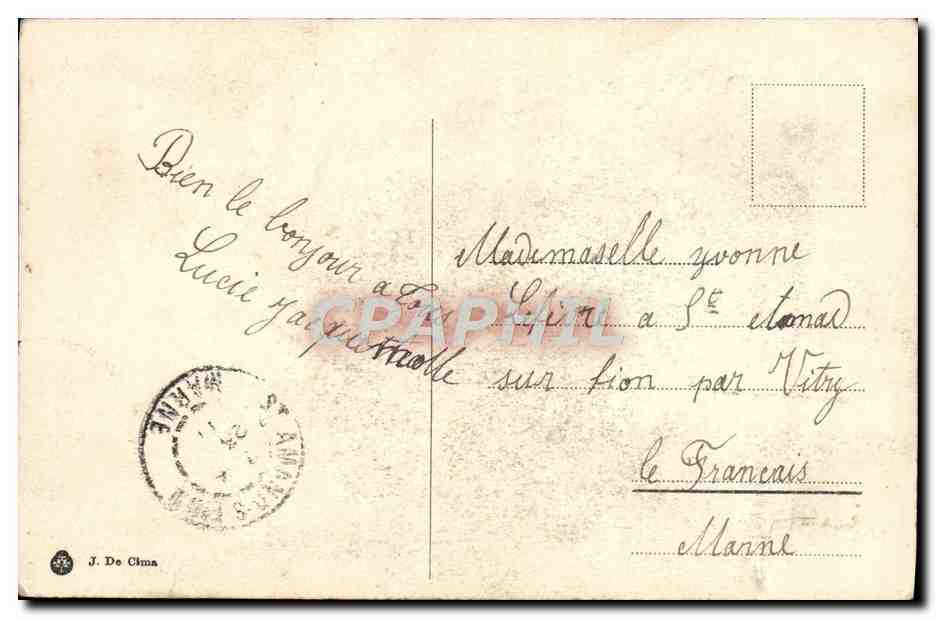 Bien le bonjour a tous
Lucie Jacquemolle
Mademaselle yvonne
a Ste
sur fion par Vitry
le Francais
Marne
ST AMAND-S-FION
MARNE
J. De Cima
CPAPHIL